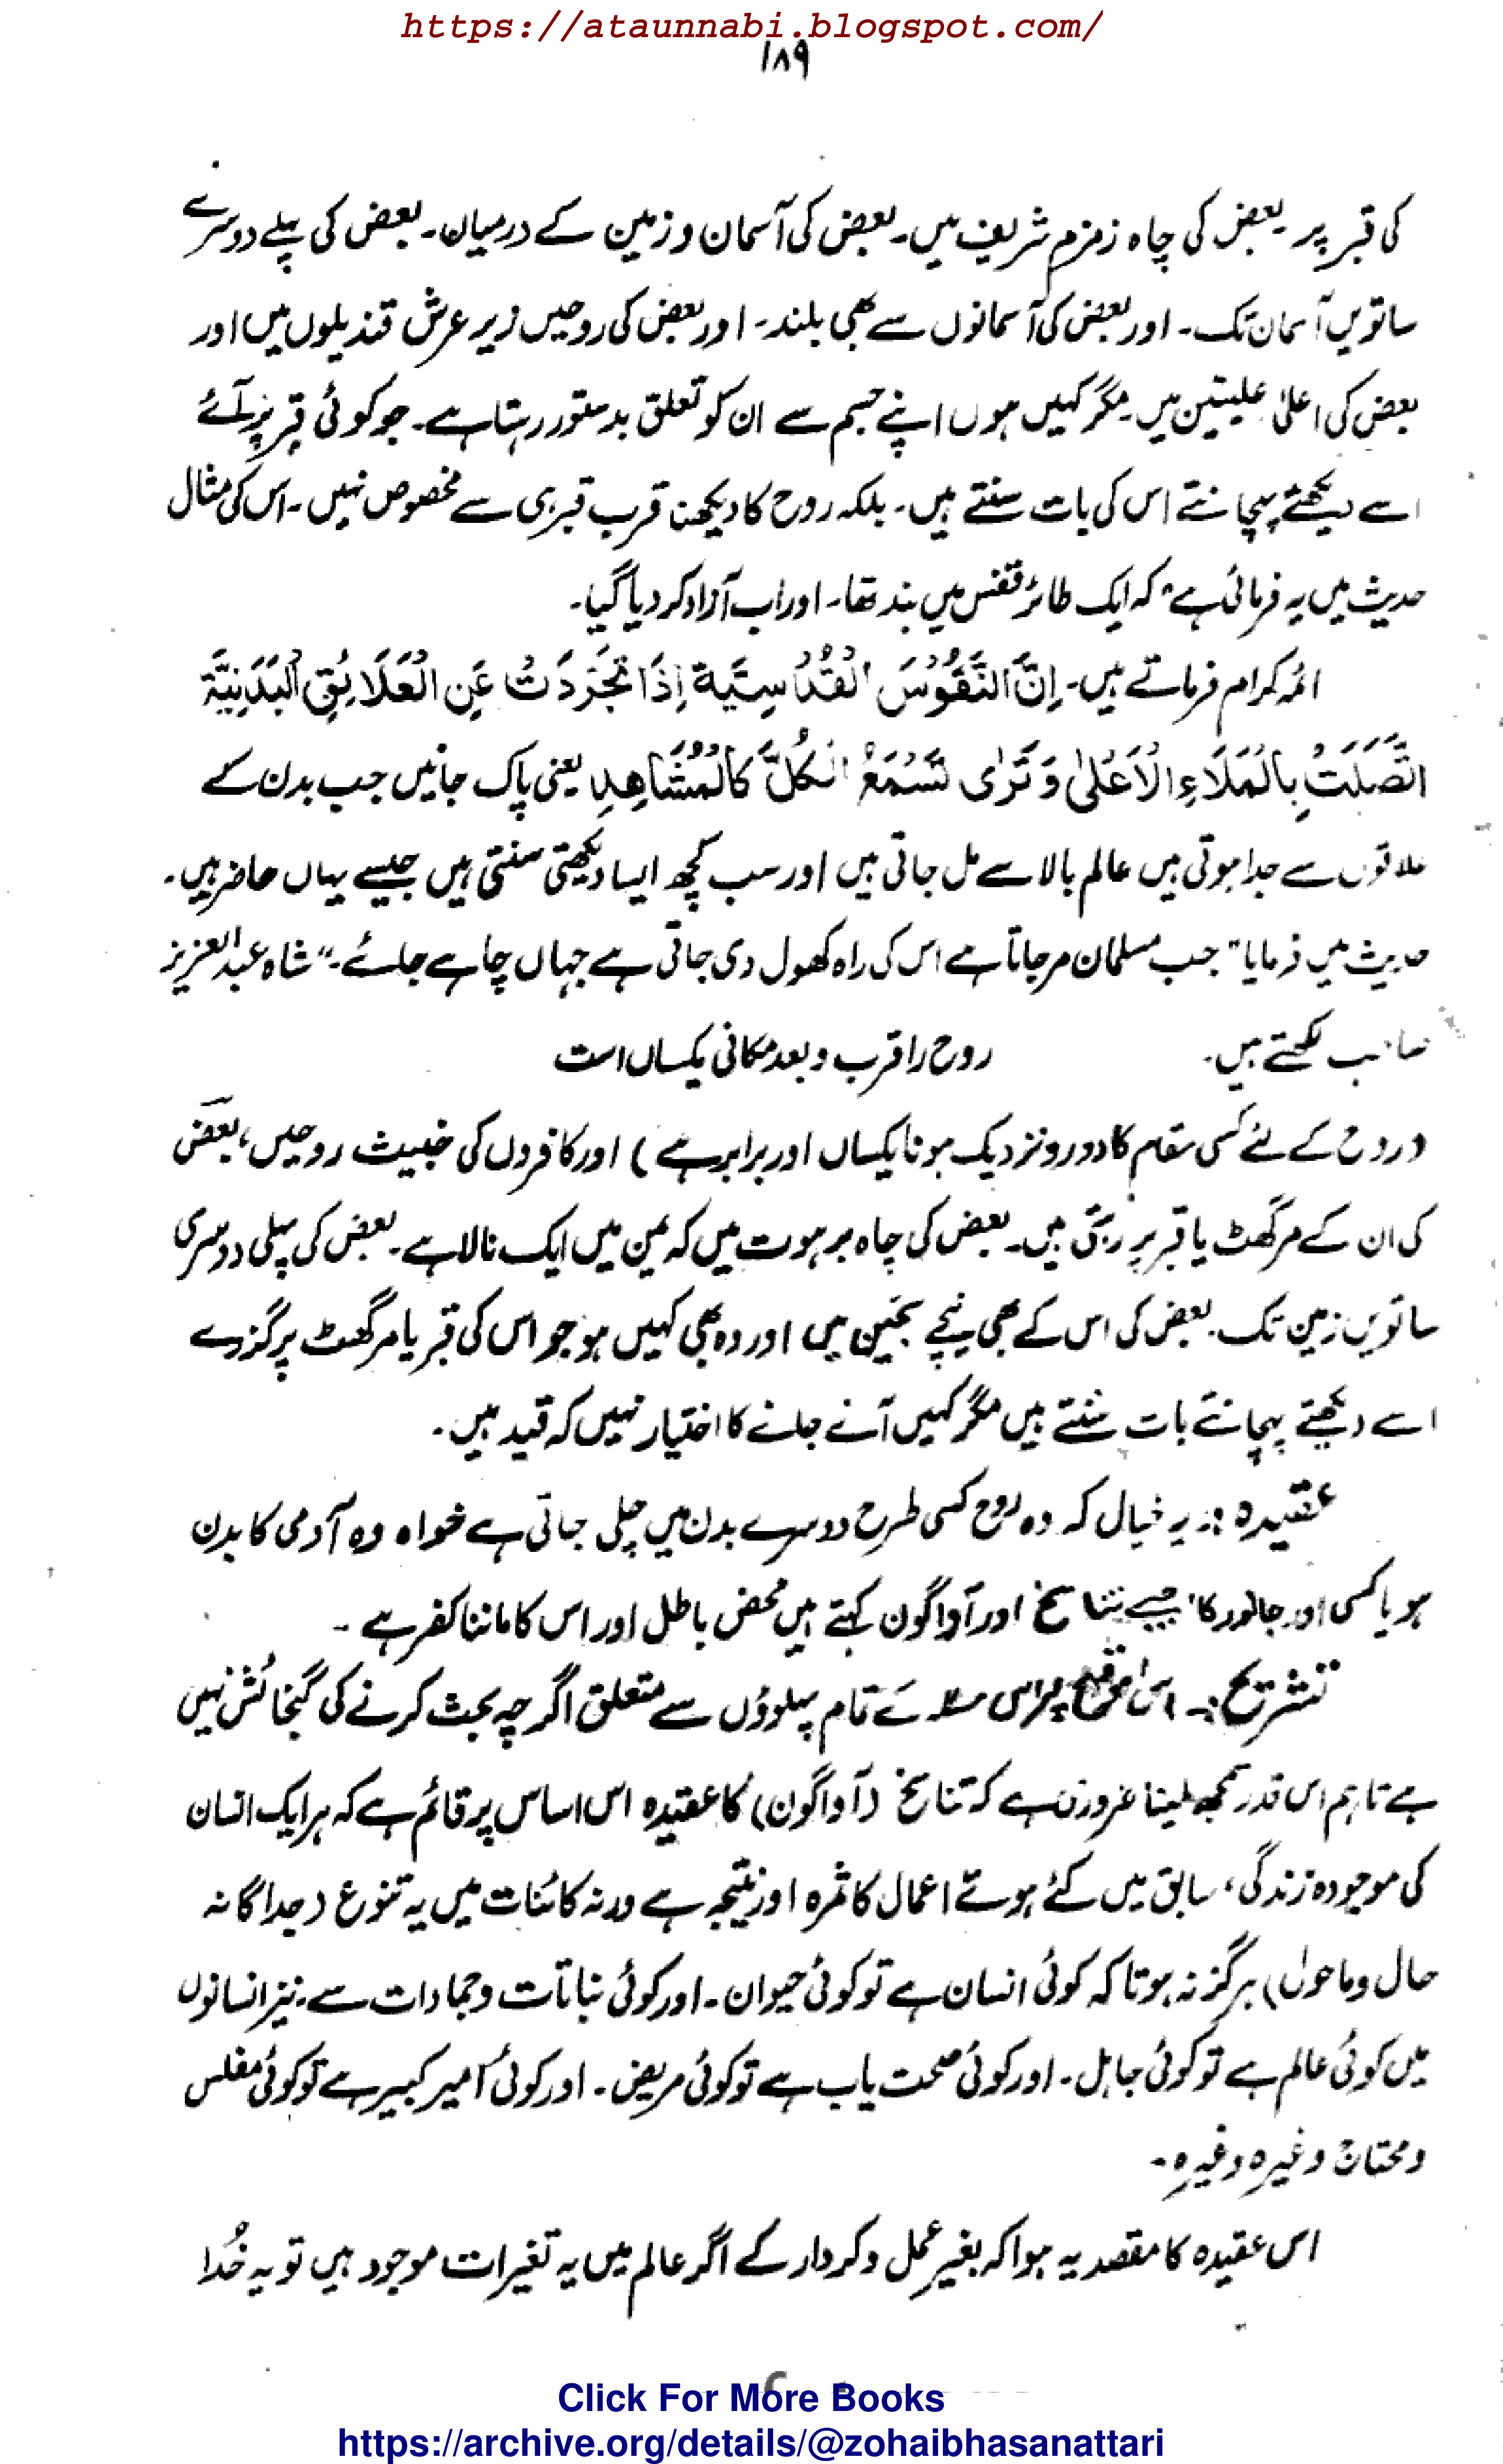 https://ataunnabi.blogspot.com/
۱۸۹
کی قبر پر۔ بعض کی چاہ زمزم شریف میں۔ بعض کی آسمان و زمین کے درمیان۔ بعض کی پہلے دوسرے
ساتویں آسمان تک۔ اور بعض کی آسمانوں سے بھی بلند۔ اور بعض کی روحیں زیر عرش قندیلوں میں اور
بعض کی اعلیٰ علیین میں۔ مگر کہیں ہوں اپنے جسم سے ان کو تعلق بدستور رہتا ہے۔ جو کوئی قبر پر آئے
اسے دیکھتے پہچانتے اس کی بات سنتے ہیں۔ بلکہ روح کا دیکھنا قرب قبر ہی سے مخصوص نہیں۔ اس کی مثال
حدیث میں یہ فرمائی ہے، کہ ایک طائر قفس میں بند تھا۔ اور اب آزاد کر دیا گیا۔
ائمہ کرام فرماتے ہیں۔ اِنَّ النُّفُوْسَ الْقُدُسِیَّةَ اِذَا تَجَرَّدَتْ عَنِ الْعَلَائِقِ الْبَدَنِیَّةِ
اتَّصَلَتْ بِالْمَلَاءِ الْاَعْلیٰ وَ تَرٰی تَسْمَعُ الْکُلَّ کَالْمُشَاهِدِ یعنی پاک جانیں جب بدن کے
علاقوں سے جدا ہوتی ہیں عالم بالا سے مل جاتی ہیں اور سب کچھ ایسا دیکھتی سنتی ہیں جیسے یہاں حاضر ہیں۔
حدیث میں فرمایا "جب مسلمان مر جاتا ہے اس کی راہ کھول دی جاتی ہے جہاں چاہے جائے۔" شاہ عبدالعزیز
صاحب لکھتے ہیں۔ روح را قرب و بعد مکانی یکساں است
(روح کے لئے کسی مقام کا دور و نزدیک ہونا یکساں اور برابر ہے) اور کافروں کی خبیث روحیں، بعض
کی ان کے مرگھٹ یا قبر پر رہتی ہیں۔ بعض کی چاہ برہوت میں کہ یمن میں ایک نالا ہے۔ بعض کی پہلی دوسری
ساتویں زمین تک۔ بعض کی اس کے بھی نیچے سجین میں اور وہ بھی کہیں ہو جو اس کی قبر یا مرگھٹ پر گزرے
اسے دیکھتے پہچانتے بات سنتے ہیں مگر کہیں آنے جانے کا اختیار نہیں کہ قید ہیں۔
عقیدہ :۔ یہ خیال کہ وہ روح کسی طرح دوسرے بدن میں چلی جاتی ہے خواہ وہ آدمی کا بدن
ہو یا کسی اور جانور کا، جسے تناسخ اور آواگون کہتے ہیں محض باطل اور اس کا ماننا کفر ہے۔
تشریح :۔ اس پر اس مسئلہ کے تمام پہلوؤں سے متعلق اگرچہ بحث کرنے کی گنجائش نہیں
ہے تاہم اس قدر سمجھ لینا ضروری ہے کہ تناسخ (آواگون) کا عقیدہ اس اساس پر قائم ہے کہ ہر ایک انسان
کی موجودہ زندگی، سابق میں کئے ہوئے اعمال کا ثمرہ اور نتیجہ ہے ورنہ کائنات میں یہ تنوع (جداگانہ
حال و ماحول) ہرگز نہ ہوتا کہ کوئی انسان ہے تو کوئی حیوان۔ اور کوئی نباتات و جمادات سے۔ نیز انسانوں
میں کوئی عالم ہے تو کوئی جاہل۔ اور کوئی صحت یاب ہے تو کوئی مریض۔ اور کوئی امیر کبیر ہے تو کوئی مفلس
و محتاج وغیرہ وغیرہ۔
اس عقیدہ کا مقصد یہ ہوا کہ بغیر عمل و کردار کے اگر عالم میں یہ تغیرات موجود ہیں تو یہ خُدا
Click For More Books
https://archive.org/details/@zohaibhasanattari